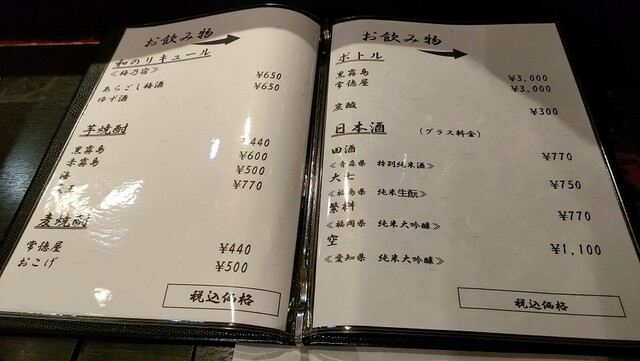 お飲み物
和のリキュール
≪梅乃宿≫
あらごし梅酒 ¥650
ゆず酒 ¥650
芋焼酎
黒霧島 ¥440
赤霧島 ¥600
海 ¥500
王 ¥770
麦焼酎
常徳屋 ¥440
おこげ ¥500
税込価格
お飲み物
ボトル
黒霧島 ¥3,000
常徳屋 ¥3,000
炭酸 ¥300
日本酒 (グラス料金)
田酒 ¥770
≪青森県 特別純米酒≫
大七 ¥750
≪福島県 純米生酛≫
繁桝 ¥770
≪福岡県 純米大吟醸≫
空 ¥1,100
≪愛知県 純米大吟醸≫
税込価格